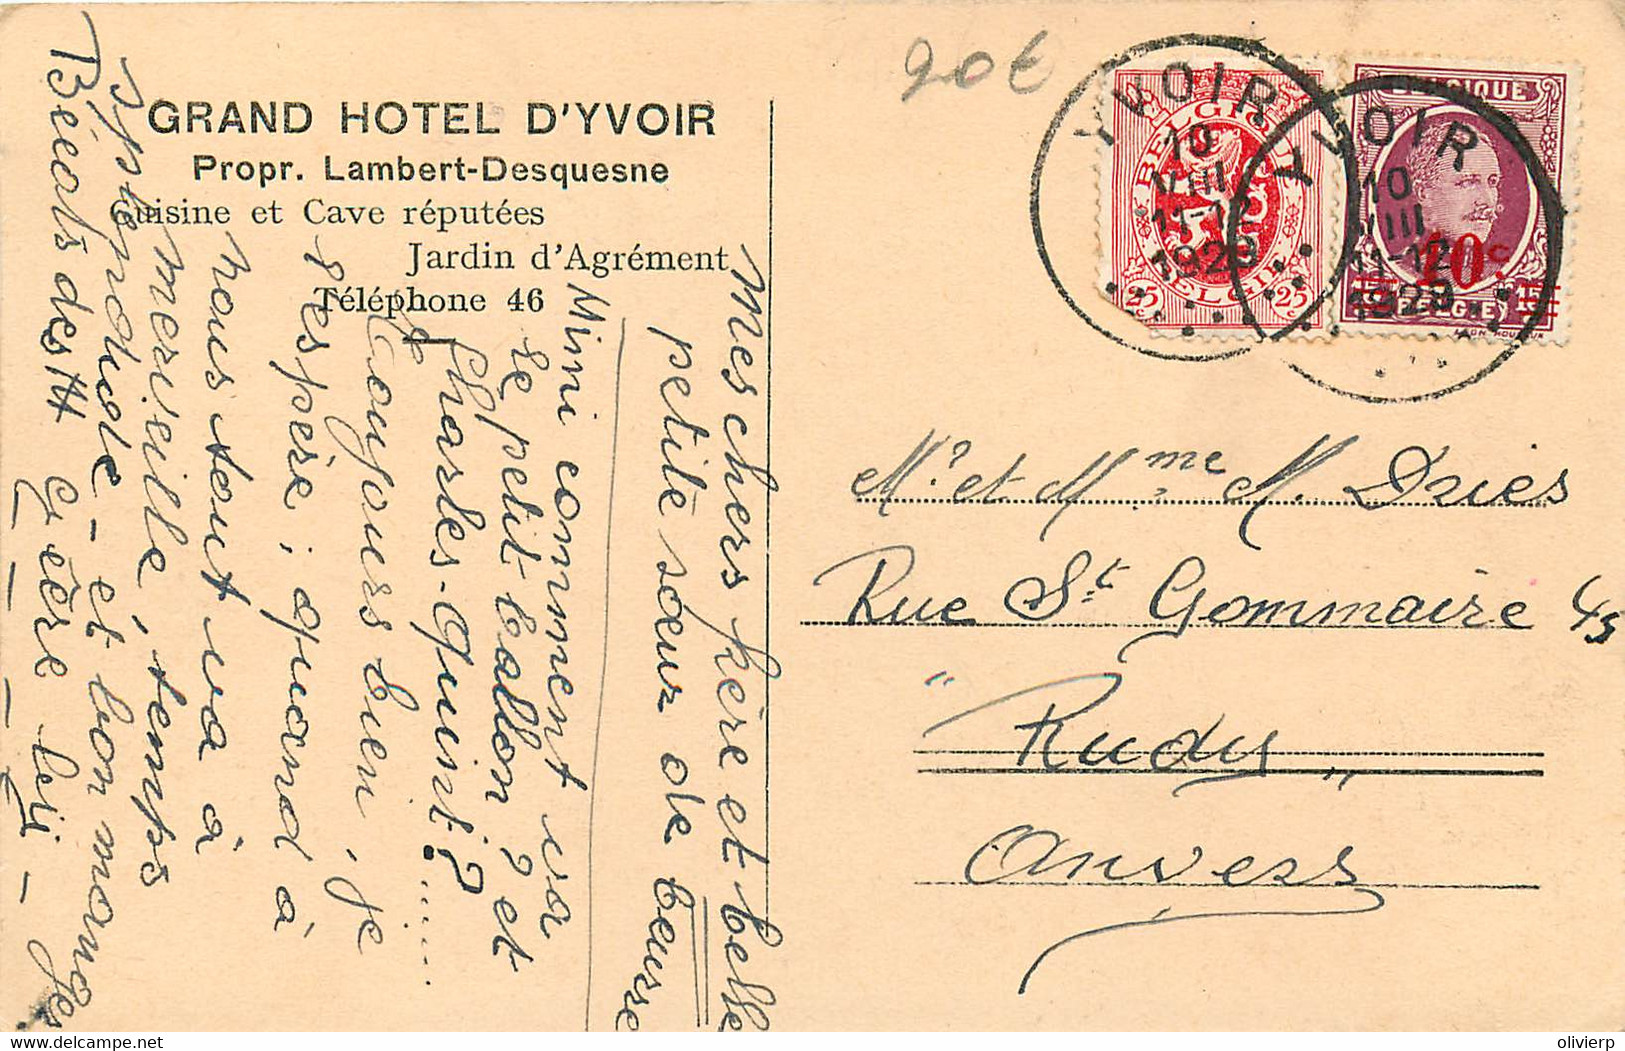 GRAND HOTEL D'YVOIR
Propr. Lambert-Desquesne
Cuisine et Cave réputées
Jardin d'Agrément
Téléphone 46
20€
YVOIR
10
VIII
11-12
1929
YVOIR
10
VIII
11-12
1929
BELGIQUE
BELGIË
25 c
25 c
BELGIQUE
10 c
BELGIË
15
Mes chers frère et belle
petite sœur de beurre
Mimi comment va
le petit ballon? et
le Charles-Quint?......
Toujours bien, je
l'espère; quand à
nous tout va à
merveille, temps
splendide - et bon manger
Bécots des H
Mr et Mme M. Dries
Rue St Gommaire 45
"Rudy"
Anvers
olivierp